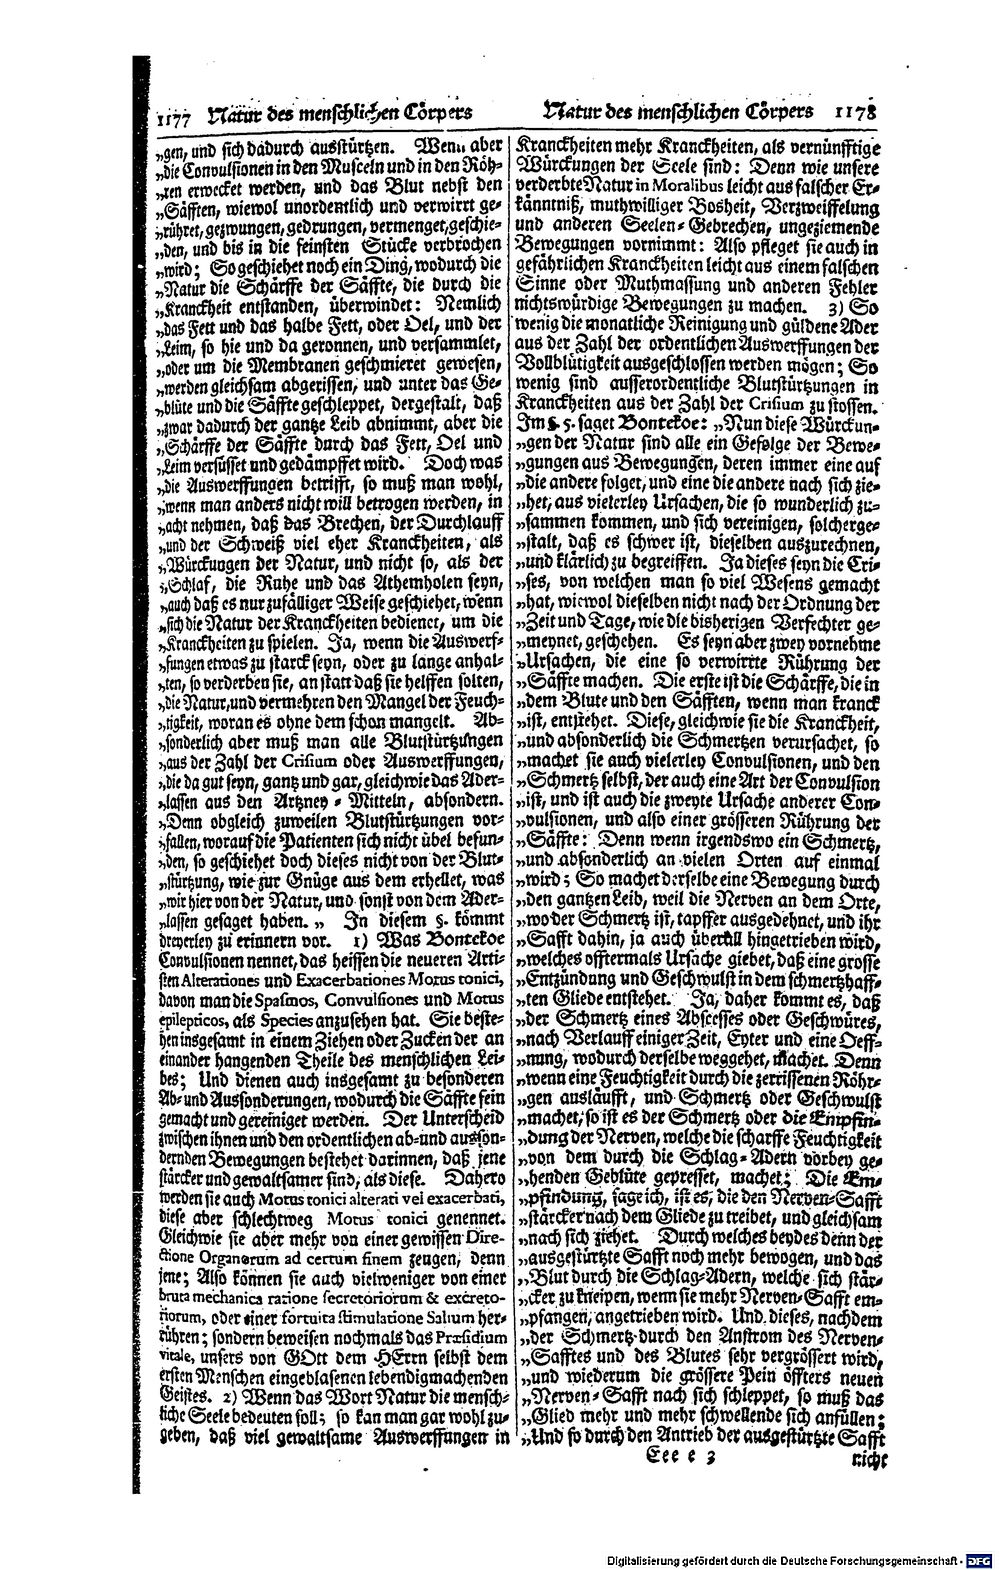 1177 Natur des menschlichen Cörpers
„gen, und sich dadurch ausstürtzen. Wenn aber
„die Convulsionen in den Musceln und in den Röh-
„ren erwecket werden, und das Blut nebst den
„Säfften, wiewol unordentlich und verwirrt ge-
„rühret, gezwungen, gedrungen, vermenget, geschie-
„den, und bis in die feinsten Stücke verbrochen
„wird; So geschiehet noch ein Ding, wodurch die
„Natur die Schärffe der Säffte, die durch die
„Kranckheit entstanden, überwindet: Nemlich
„das Fett und das halbe Fett, oder Oel, und der
„Leim, so hie und da geronnen, und versammlet,
„oder um die Membranen geschmieret gewesen,
„werden gleichsam abgerissen, und unter das Ge-
„blüte und die Säffte geschleppet, dergestalt, daß
„zwar dadurch der gantze Leib abnimmt, aber die
„Schärffe der Säffte durch das Fett, Oel und
„Leim versüsset und gedämpffet wird. Doch was
„die Auswerffungen betrifft, so muß man wohl,
„wenn man anders nicht will betrogen werden, in
„acht nehmen, daß das Brechen, der Durchlauff
„und der Schweiß viel eher Kranckheiten, als
„Würckungen der Natur, und nicht so, als der
„Schlaf, die Ruhe und das Athemholen seyn,
„auch daß es nur zufälliger Weise geschiehet, wenn
„sich die Natur der Kranckheiten bedienet, um die
„Kranckheiten zu spielen. Ja, wenn die Auswerf-
„fungen etwas zu starck seyn, oder zu lange anhal-
„ten, so verderben sie, an statt daß sie helffen solten,
„die Natur, und vermehren den Mangel der Feuch-
„tigkeit, woran es ohne dem schon mangelt. Ab-
„sonderlich aber muß man alle Blutstürtzungen
„aus der Zahl der Crisium oder Auswerffungen,
„die da gut seyn, gantz und gar, gleichwie das Ader-
„lassen aus den Artzney-Mitteln, absondern.
„Denn obgleich zuweilen Blutstürtzungen vor-
„fallen, worauf die Patienten sich nicht übel befun-
„den, so geschiehet doch dieses nicht von der Blut-
„stürtzung, wie zur Gnüge aus dem erhellet, was
„wir hier von der Natur, und sonst von dem Ader-
„lassen gesaget haben.„ In diesem §. kömmt
dreyerley zu erinnern vor. 1) Was Bontekoe
Convulsionen nennet, das heissen die neueren Arti-
sten Alterationes und Exacerbationes Motus tonici,
davon man die Spasmos, Convulsiones und Motus
epilepticos, als Species anzusehen hat. Sie beste-
hen insgesamt in einem Ziehen oder Zucken der an
einander hangenden Theile des menschlichen Lei-
bes; Und dienen auch insgesamt zu besonderen
Ab- und Aussonderungen, wodurch die Säffte fein
gemacht und gereiniget werden. Der Unterscheid
zwischen ihnen und den ordentlichen ab- und ausson-
dernden Bewegungen bestehet darinnen, daß jene
stärcker und gewaltsamer sind, als diese. Dahero
werden sie auch Motus tonici alterati vel exacerbati,
diese aber schlechtweg Motus tonici genennet.
Gleichwie sie aber mehr von einer gewissen Dire-
ctione Organorum ad certum finem zeugen, denn
jene; Also können sie auch vielweniger von einer
bruta mechanica ratione secretoriorum & excreto-
riorum, oder einer fortuita stimulatione Salium her-
rühren; sondern beweisen nochmals das Præsidium
vitale, unsers von GOtt dem HErrn selbst dem
ersten Menschen eingeblasenen lebendigmachenden
Geistes. 2) Wenn das Wort Natur die mensch-
liche Seele bedeuten soll; so kan man gar wohl zu-
geben, daß viel gewaltsame Auswerffungen in
Natur des menschlichen Cörpers 1178
Kranckheiten mehr Kranckheiten, als vernünfftige
Würckungen der Seele sind: Denn wie unsere
verderbte Natur in Moralibus leicht aus falscher Er-
känntniß, muthwilliger Bosheit, Verzweiffelung
und anderen Seelen-Gebrechen, ungeziemende
Bewegungen vornimmt: Also pfleget sie auch in
gefährlichen Kranckheiten leicht aus einem falschen
Sinne oder Muthmassung und anderen Fehler
nichtswürdige Bewegungen zu machen. 3) So
wenig die monatliche Reinigung und güldene Ader
aus der Zahl der ordentlichen Auswerffungen der
Vollblütigkeit ausgeschlossen werden mögen; So
wenig sind ausserordentliche Blutstürtzungen in
Kranckheiten aus der Zahl der Crisium zu stossen.
Im §. 5. saget Bontekoe: „Nun diese Würckun-
„gen der Natur sind alle ein Gefolge der Bewe-
„gungen aus Bewegungen, deren immer eine auf
„die andere folget, und eine die andere nach sich zie-
„het, aus vielerley Ursachen, die so wunderlich zu-
„sammen kommen, und sich vereinigen, solcherge-
„stalt, daß es schwer ist, dieselben auszurechnen,
„und klärlich zu begreiffen. Ja dieses seyn die Cri-
„ses, von welchen man so viel Wesens gemacht
„hat, wiewol dieselben nicht nach der Ordnung der
„Zeit und Tage, wie die bisherigen Verfechter ge-
„meynet, geschehen. Es seyn aber zwey vornehme
„Ursachen, die eine so verwirrte Rührung der
„Säffte machen. Die erste ist die Schärffe, die in
„dem Blute und den Säfften, wenn man kranck
„ist, entstehet. Diese, gleichwie sie die Kranckheit,
„und absonderlich die Schmertzen verursachet, so
„machet sie auch vielerley Convulsionen, und den
„Schmertz selbst, der auch eine Art der Convulsion
„ist, und ist auch die zweyte Ursache anderer Con-
„vulsionen, und also einer grösseren Rührung der
„Säffte: Denn wenn irgendswo ein Schmertz,
„und absonderlich an vielen Orten auf einmal
„wird; So machet derselbe eine Bewegung durch
„den gantzen Leib, weil die Nerven an dem Orte,
„wo der Schmertz ist, tapffer ausgedehnet, und ihr
„Safft dahin, ja auch überall hingetrieben wird,
„welches offtermals Ursache giebet, daß eine grosse
„Entzündung und Geschwulst in dem schmertzhaff-
„ten Gliede entstehet. Ja, daher kommt es, daß
„der Schmertz eines Abscesses oder Geschwüres,
„nach Verlauff einiger Zeit, Eyter und eine Oeff-
„nung, wodurch derselbe weggehet, machet. Denn
„wenn eine Feuchtigkeit durch die zerrissenen Röhr-
„gen ausläufft, und Schmertz oder Geschwulst
„machet; so ist es der Schmertz oder die Empfin-
„dung der Nerven, welche die scharffe Feuchtigkeit
„von dem durch die Schlag-Adern vorbey ge-
„henden Geblüte gepresset, machet; Die Em-
„pfindung, sage ich, ist es, die den Nerven-Safft
„stärcker nach dem Gliede zu treibet, und gleichsam
„nach sich ziehet. Durch welches beydes denn der
„ausgestürtzte Safft noch mehr bewogen, und das
„Blut durch die Schlag-Adern, welche sich stär-
„cker zu kneipen, wenn sie mehr Nerven-Safft em-
„pfangen, angetrieben wird. Und dieses, nachdem
„der Schmertz durch den Anstrom des Nerven-
„Safftes und des Blutes sehr vergrössert wird,
„und wiederum die grössere Pein öffters neuen
„Nerven-Safft nach sich schleppet, so muß das
„Glied mehr und mehr schwellende sich anfüllen;
„Und so durch den Antrieb der ausgestürtzte Safft
Eee e 3
nicht
Digitalisierung gefördert durch die Deutsche Forschungsgemeinschaft - DFG